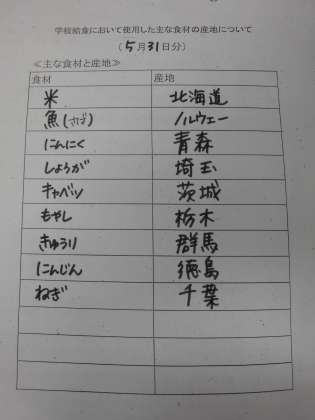 学校給食において使用した主な食材の産地について
(5月31日分)
≪主な食材と産地≫
食材 産地
米 北海道
魚(さば) ノルウェー
にんにく 青森
しょうが 埼玉
キャベツ 茨城
もやし 栃木
きゅうり 群馬
にんじん 徳島
ねぎ 千葉